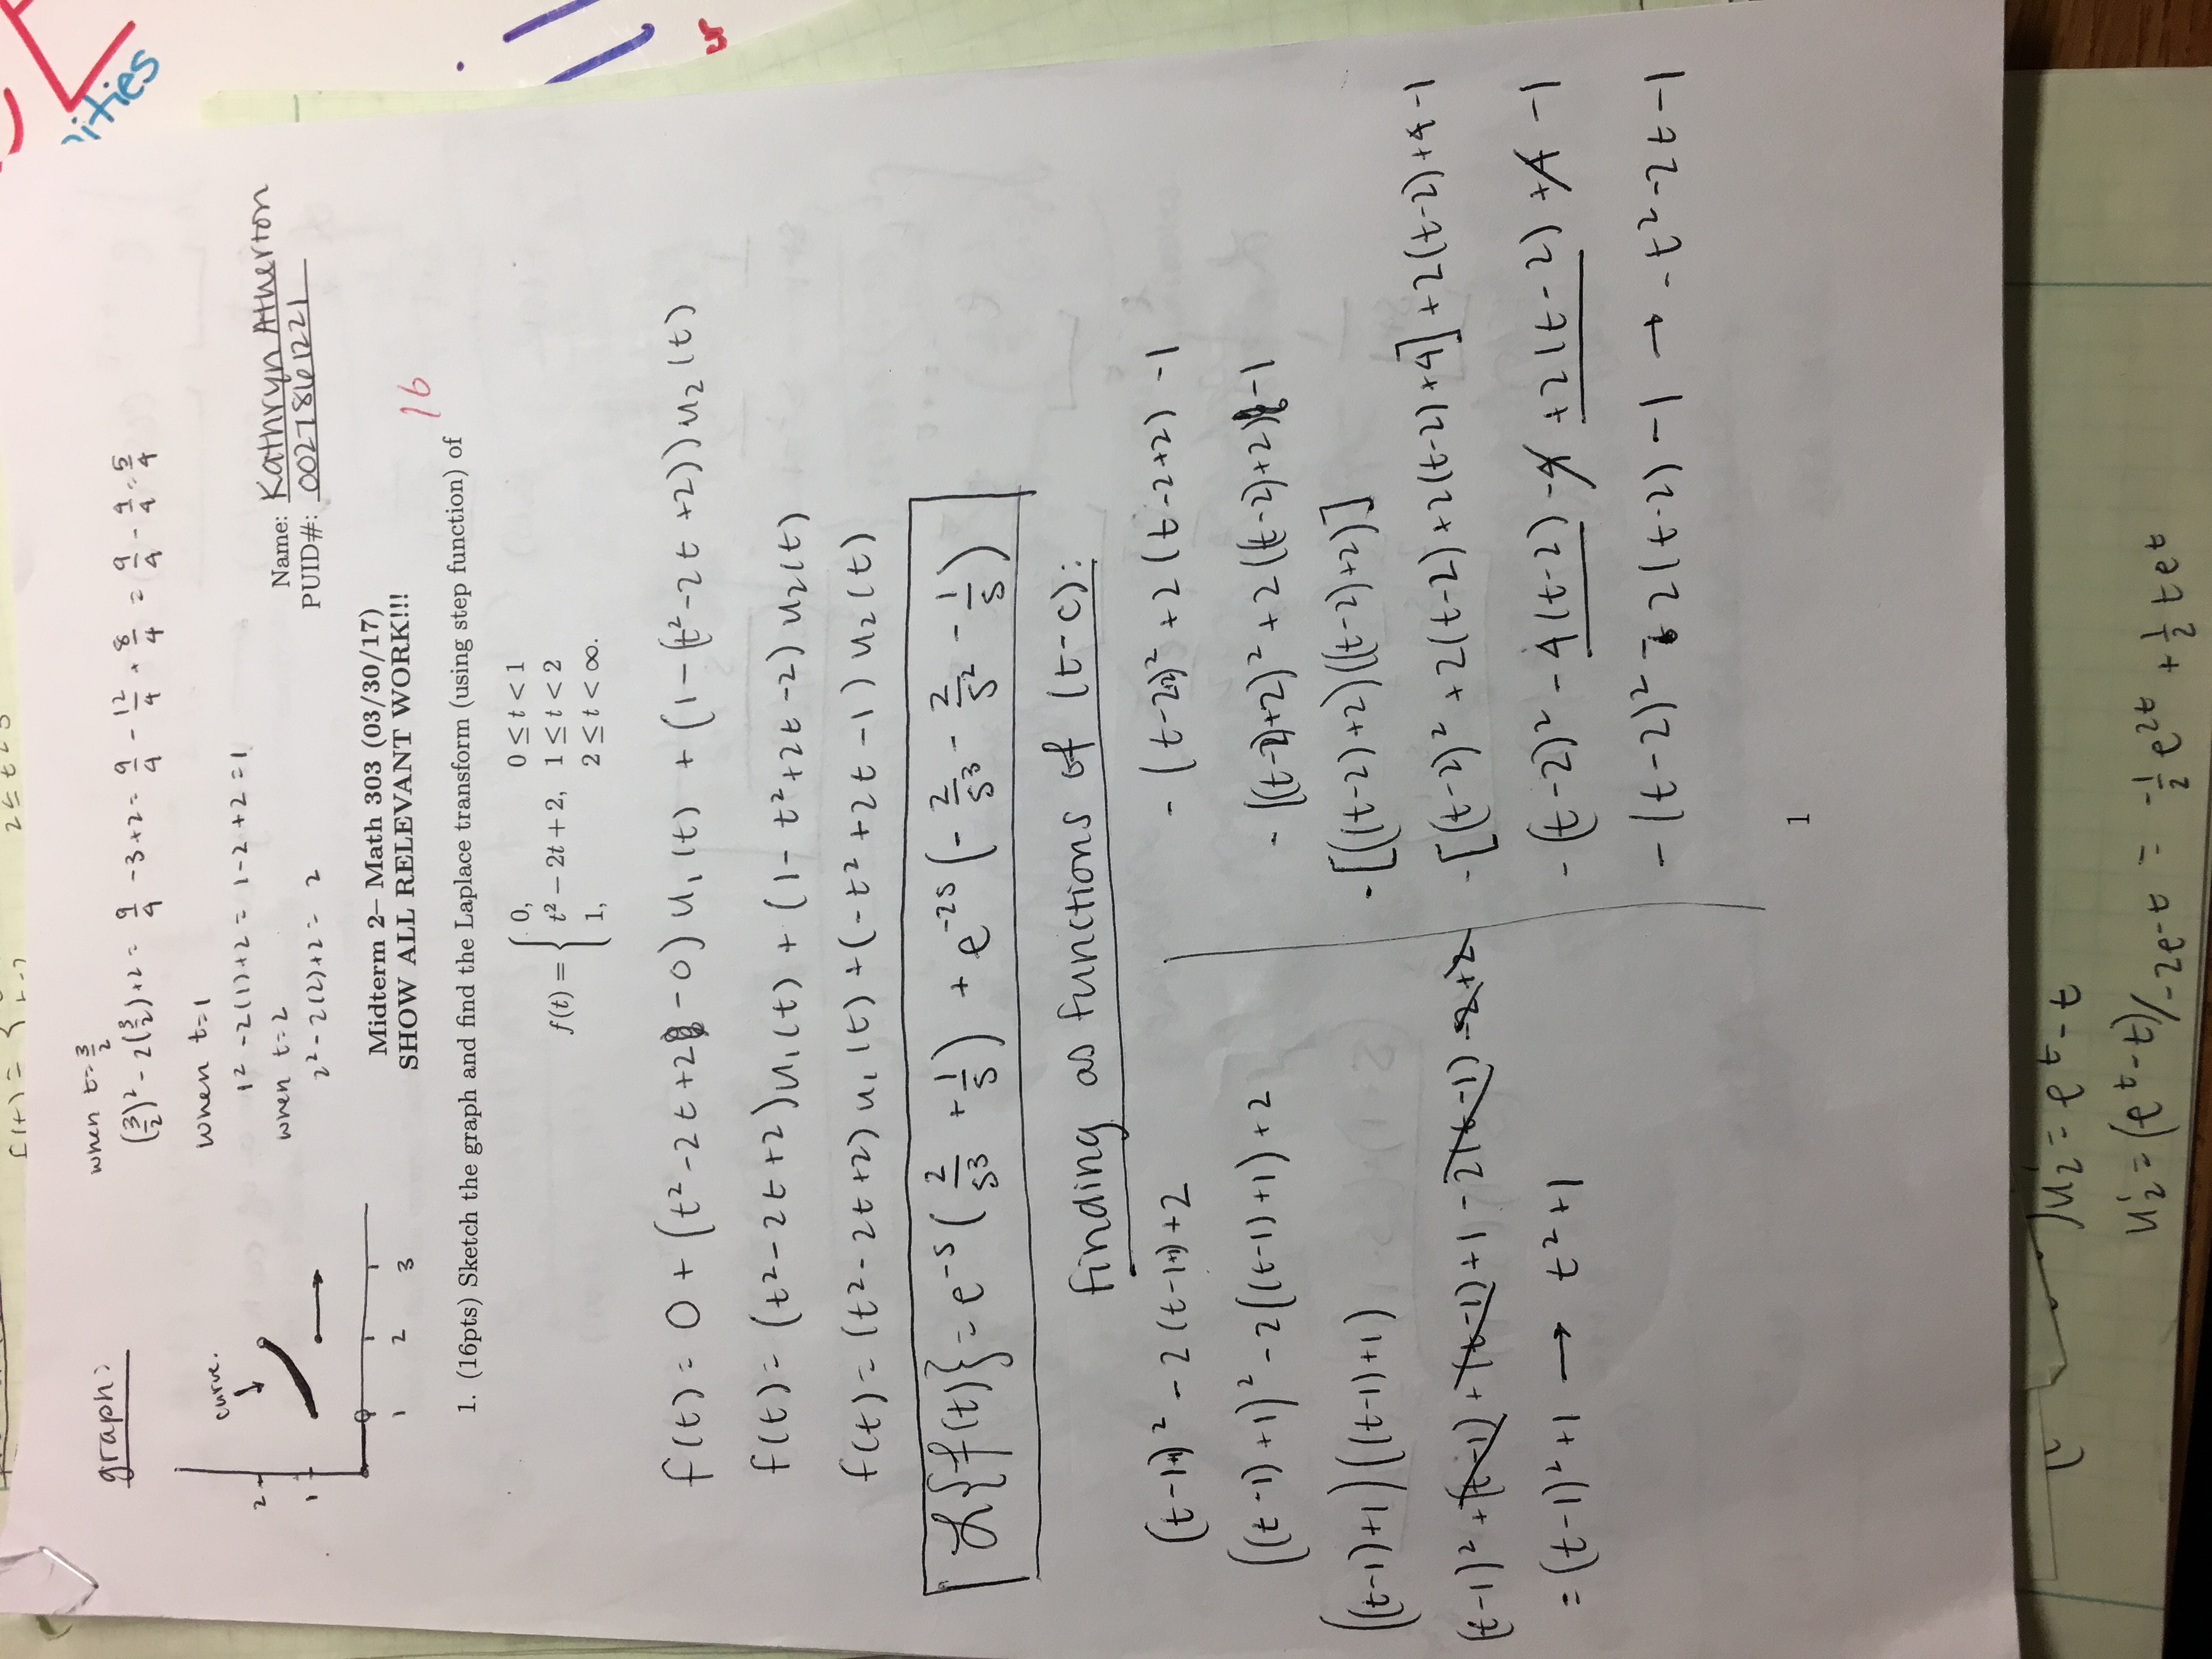 2 ≤ t < 3
graph:
when t=3/2
(3/2)² - 2(3/2)+2 = 9/4 - 3+2 = 9/4 - 12/4 + 8/4 = 9/4 - 4/4 = 5/4
when t=1
1² - 2(1)+2 = 1-2+2 = 1
when t=2
2² - 2(2)+2 = 2
curve.
2
1
1 2 3
ities
Name: Kathryn Atherton
PUID#: 0027861221
Midterm 2– Math 303 (03/30/17)
SHOW ALL RELEVANT WORK!!!
16
1. (16pts) Sketch the graph and find the Laplace transform (using step function) of
f(t) = { 0, 0 ≤ t < 1
t² − 2t + 2, 1 ≤ t < 2
1, 2 ≤ t < ∞.
f(t) = 0 + (t² - 2t + 2 - 0) u₁(t) + (1 - (t² - 2t + 2)) u₂(t)
f(t) = (t² - 2t + 2) u₁(t) + (1 - t² + 2t - 2) u₂(t)
f(t) = (t² - 2t + 2) u₁(t) + (-t² + 2t - 1) u₂(t)
ℒ{f(t)} = e^(-s) (2/s³ + 1/s) + e^(-2s) (-2/s³ - 2/s² - 1/s)
finding as functions of (t-c):
(t-1+1)² - 2(t-1+1)+2
((t-1)+1)² - 2((t-1)+1)+2
((t-1)+1)((t-1)+1)
(t-1)² + (t-1) + (t-1) + 1 - 2(t-1) - 2 + 2
= (t-1)² + 1 → t² + 1
- (t-2+2)² + 2(t-2+2) - 1
- ((t-2)+2)² + 2((t-2)+2) - 1
- [((t-2)+2)((t-2)+2)]
- [(t-2)² + 2(t-2) + 2(t-2) + 4] + 2(t-2) + 4 - 1
- (t-2)² - 4(t-2) - 4 + 2(t-2) + 4 - 1
- (t-2)² - 2(t-2) - 1 → -t² - 2t - 1
1
u₂' = e^t - t
u₂' = (e^t - t)/-2e^-t = -1/2 e^2t + 1/2 te^t